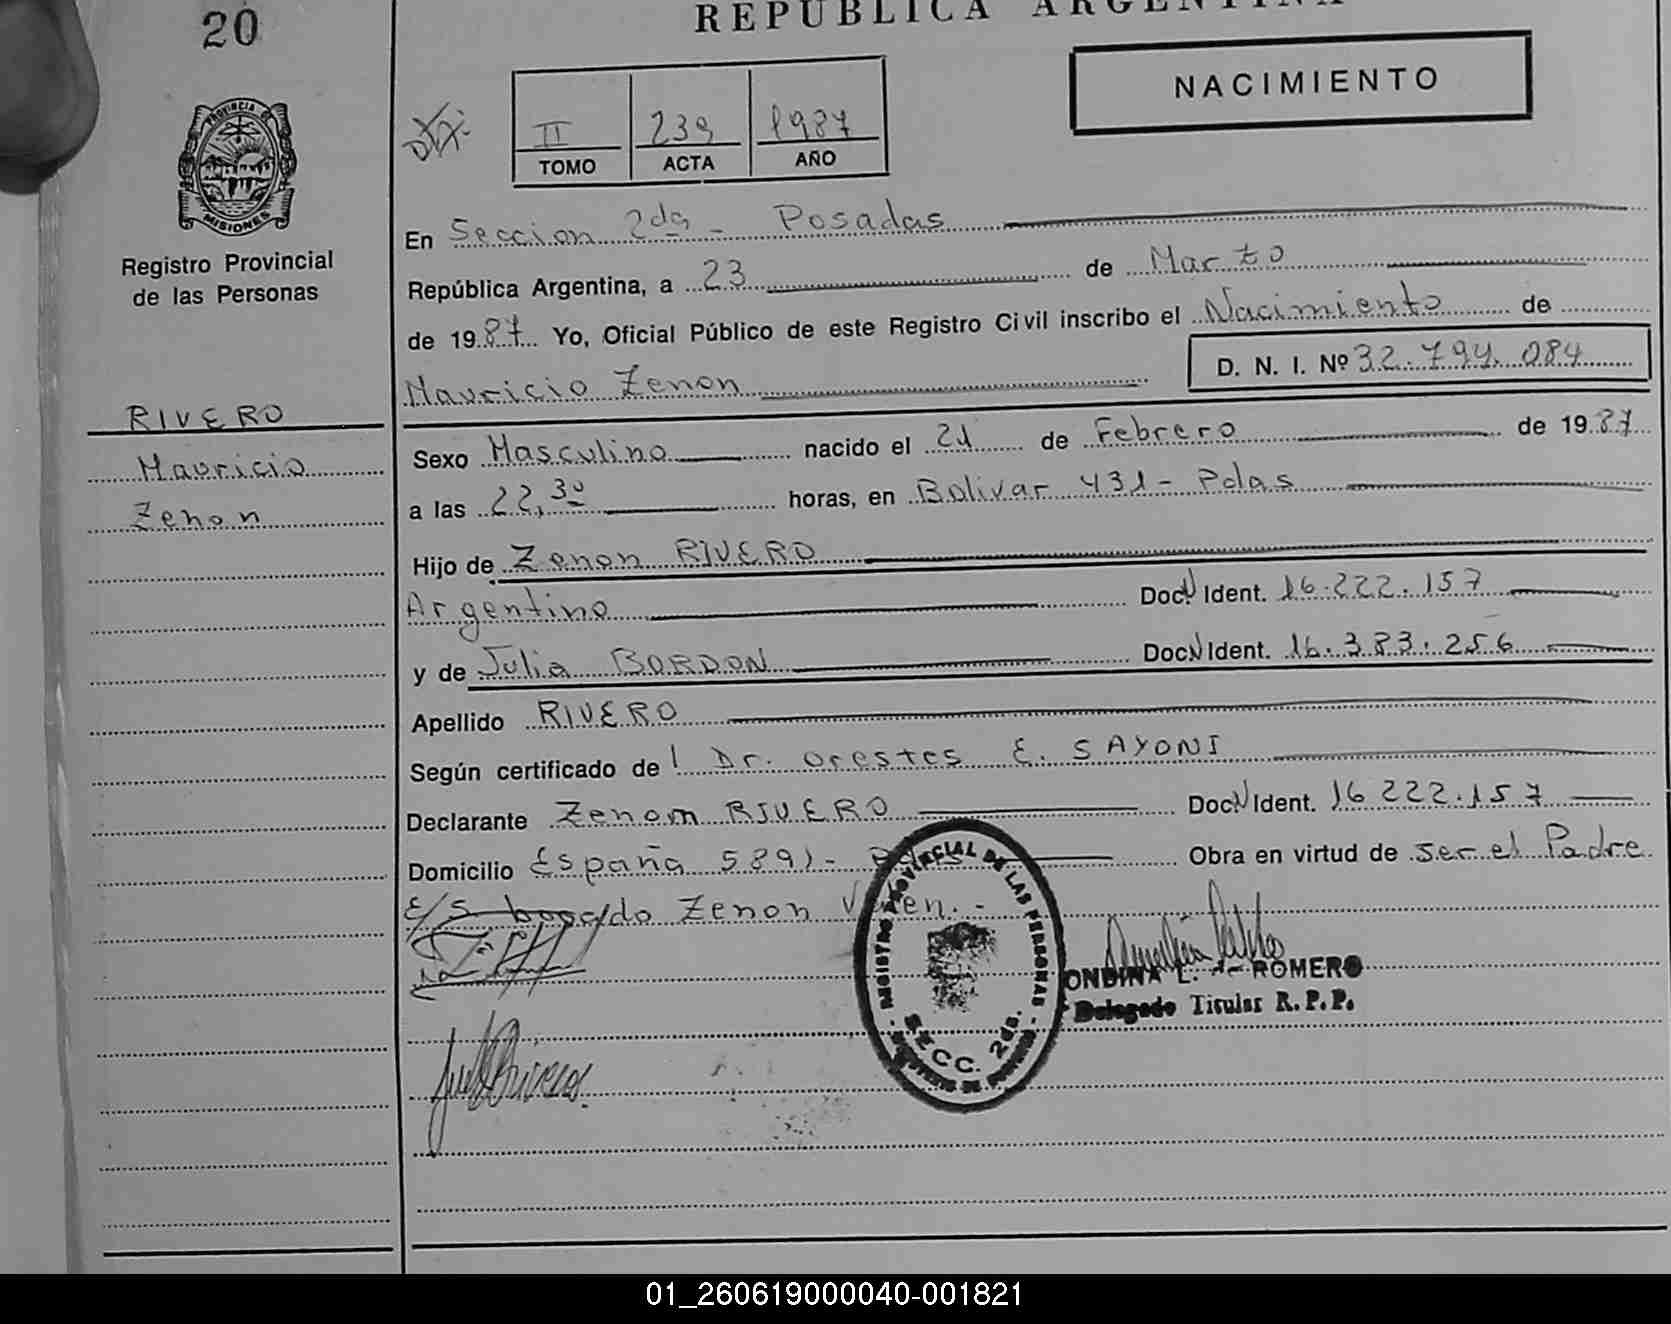 20
REPUBLICA ARGENTINA
NACIMIENTO
II 239 1987
TOMO ACTA AÑO
PROVINCIA DE
MISIONES
Registro Provincial
de las Personas
RIVERO
Mauricio
Zenon
En Seccion 2da - Posadas
República Argentina, a 23 de Marzo
de 1987 Yo, Oficial Público de este Registro Civil inscribo el Nacimiento de
Mauricio Zenon D. N. I. Nº 32.794.084
Sexo Masculino nacido el 21 de Febrero de 1987
a las 22,30 horas, en Bolivar 431 - Pdas
Hijo de Zenon RIVERO
Argentino Doc. N Ident. 16.222.157
y de Julia BORDON Doc. N Ident. 16.383.256
Apellido RIVERO
Según certificado del Dr. Orestes E. SAYONI
Declarante Zenom RIVERO Doc. N Ident. 16 222.157
Domicilio España 5891 - Pdas Obra en virtud de ser el Padre
E/S borrado Zenon Valen.-
REGISTRO PROVINCIAL DE LAS PERSONAS
SECC. 2da.
ONDINA L. ROMERO
Delegado Titular R.P.P.
01_260619000040-001821